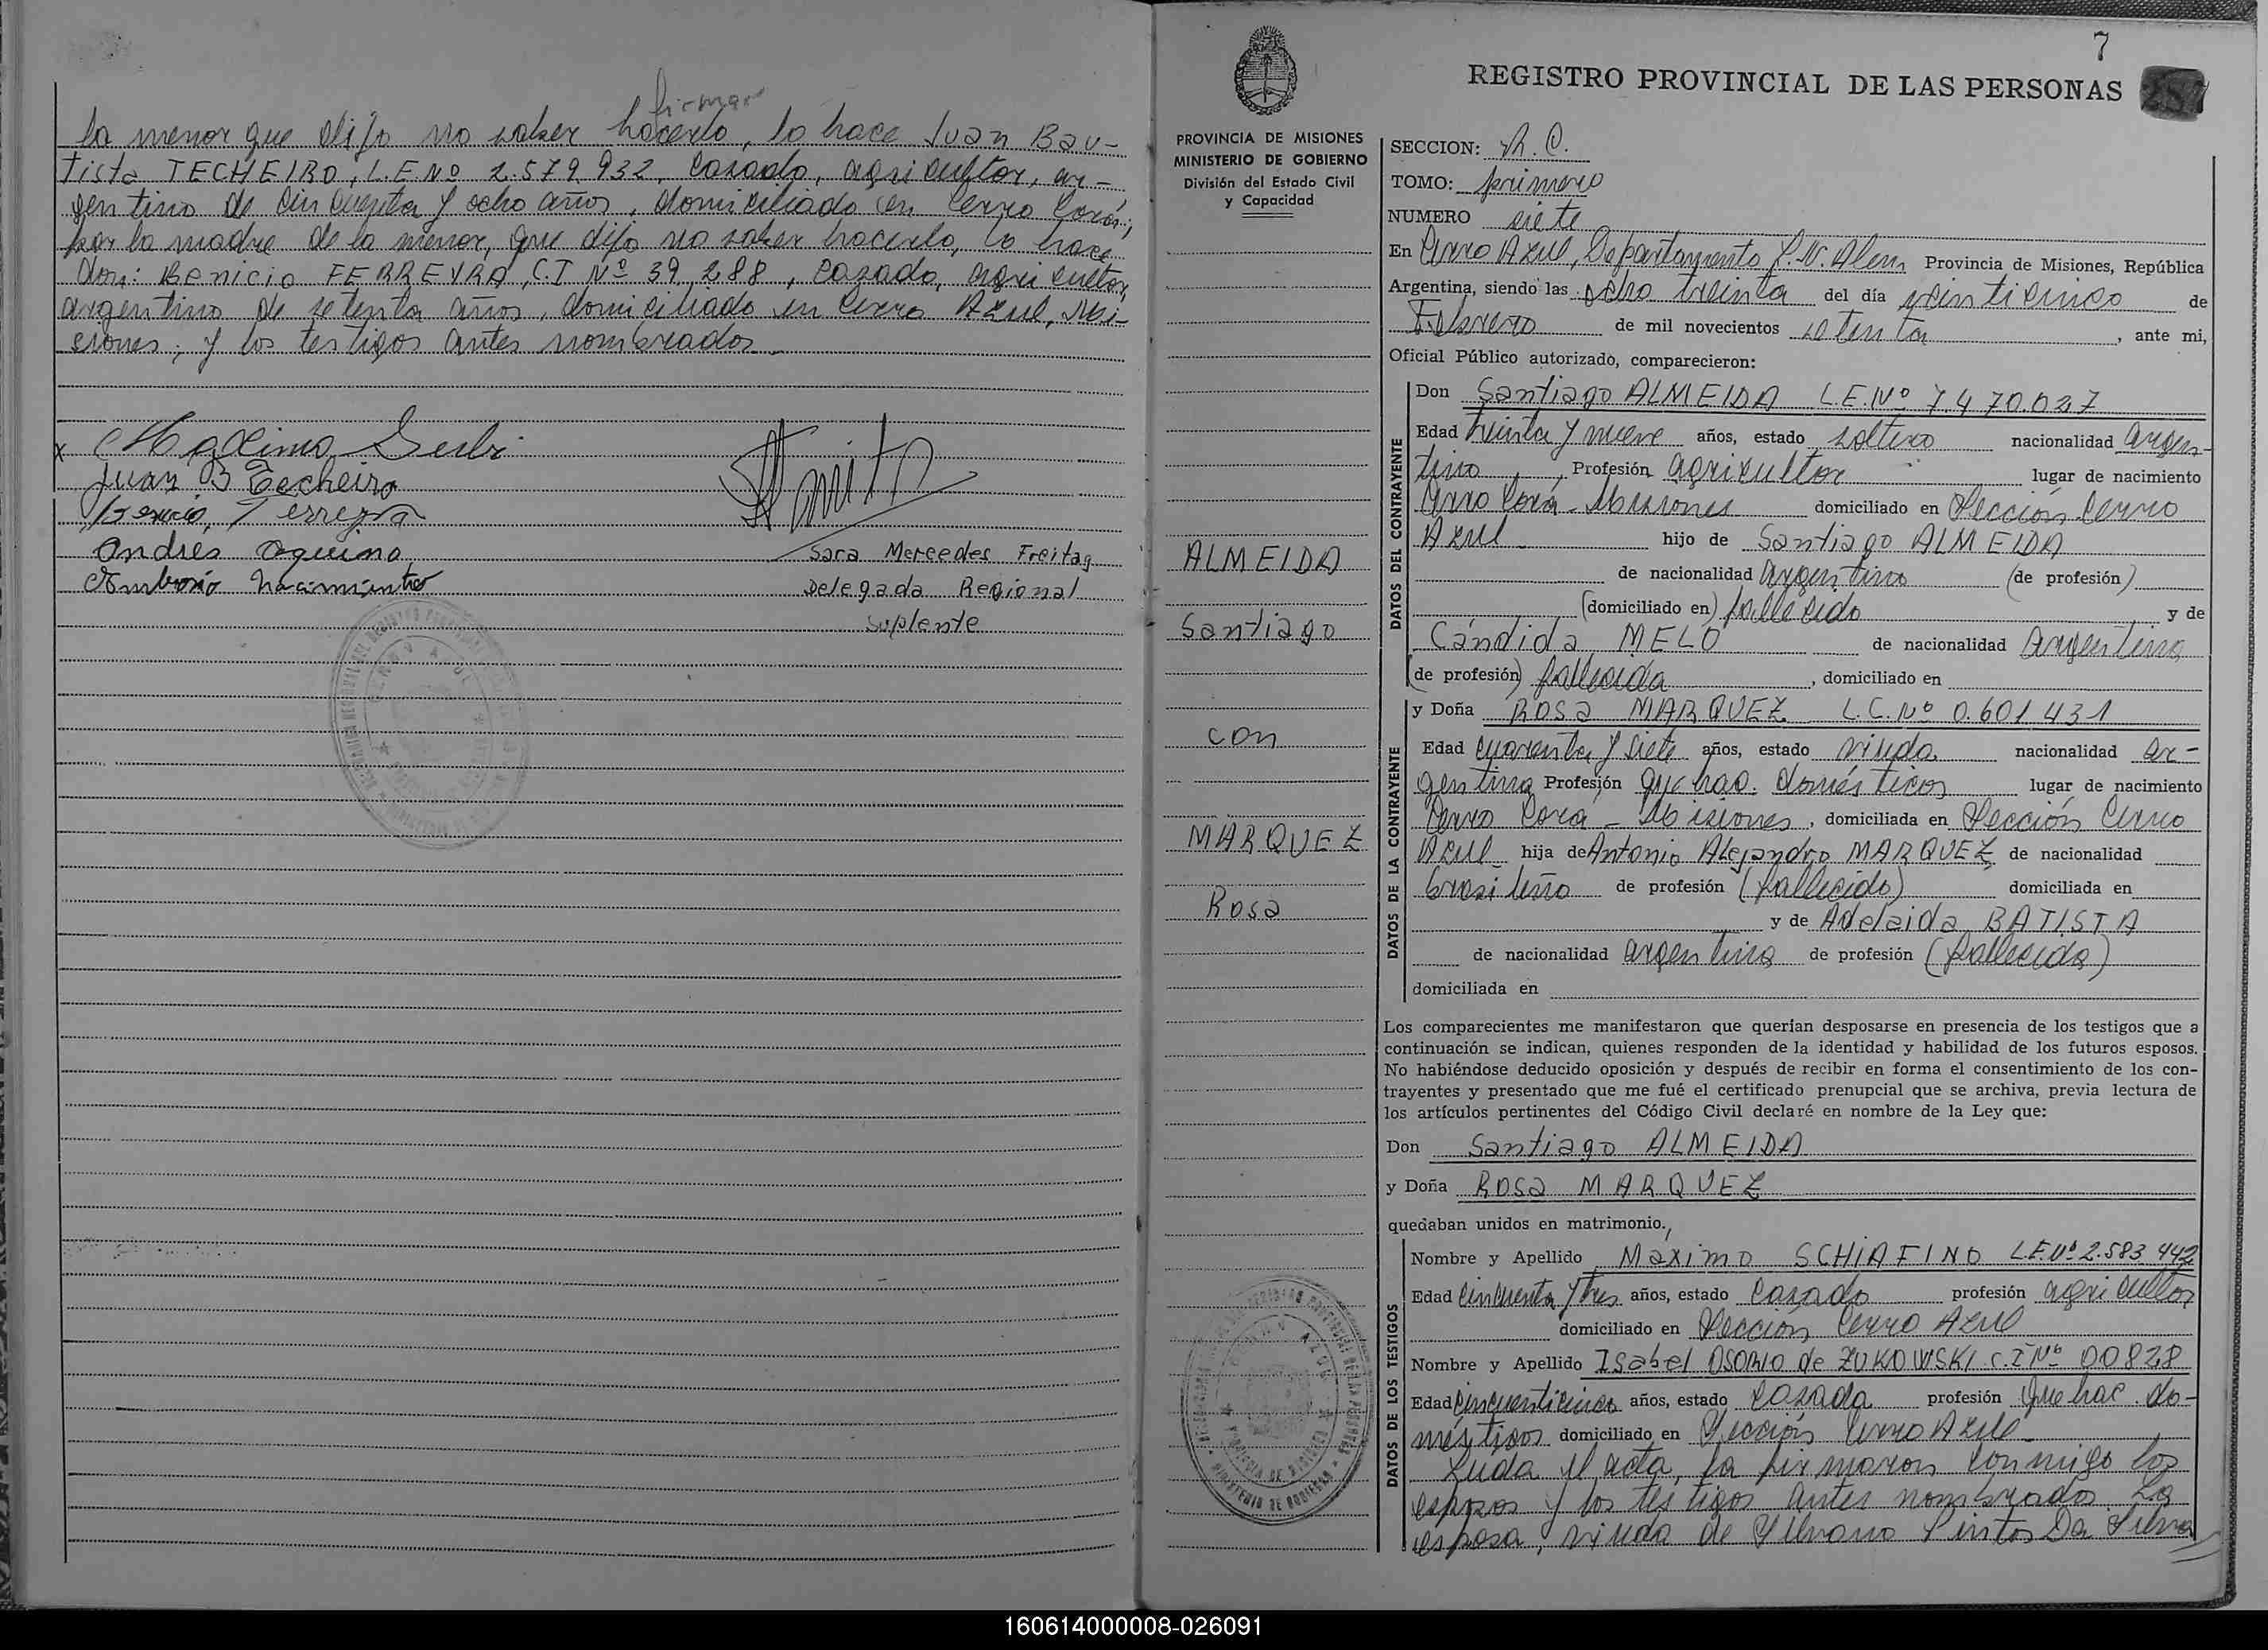 firmar
la menor que dijo no saber hacerlo, lo hace Juan Bau-
tista TECHEIRO, L.E.Nº 2.579.932, casado, agricultor, ar-
gentino de cincuenta y ocho años, domiciliado en Cerro Corá;
por la madre de la menor, que dijo no saber hacerlo, lo hace
don: Benicio FERREYRA, C.I Nº 39.288, casado, agricultor,
argentino de setenta años, domiciliado en Cerro Azul, Mi-
siones; y los testigos antes nombrados.
x Maximo
Juan B Techeiro
Benicio, Ferreyra
Andrés Aquino
Ambrosio Nacimiento
Sara Mercedes Freitag
Delegada Regional
Suplente
7
REGISTRO PROVINCIAL DE LAS PERSONAS
287
PROVINCIA DE MISIONES
MINISTERIO DE GOBIERNO
División del Estado Civil
y Capacidad
ALMEIDA
Santiago
con
MARQUEZ
Rosa
SECCION: R.C.
TOMO: primero
NUMERO siete
En Cerro Azul, Departamento L.N. Alem Provincia de Misiones, República
Argentina, siendo las ocho treinta del día veinticinco de
Febrero de mil novecientos setenta, ante mi,
Oficial Público autorizado, comparecieron:
DATOS DEL CONTRAYENTE
Don Santiago ALMEIDA L.E.Nº 7.470.037
Edad treinta y nueve años, estado soltero nacionalidad argen-
tino Profesión agricultor lugar de nacimiento
Cerro Corá - Misiones domiciliado en Sección Cerro
Azul hijo de Santiago ALMEIDA
de nacionalidad argentino (de profesión)
(domiciliado en) fallecido y de
Cándida MELO de nacionalidad argentina
(de profesión) fallecida, domiciliado en
DATOS DE LA CONTRAYENTE
y Doña ROSA MARQUEZ L.C.Nº 0.601431
Edad cuarenta y siete años, estado viuda nacionalidad ar-
gentina Profesión quehac. domésticos lugar de nacimiento
Cerro Corá - Misiones, domiciliada en Sección Cerro
Azul hija de Antonio Alejandro MARQUEZ de nacionalidad
brasileño de profesión (fallecido) domiciliada en
y de Adelaida BATISTA
de nacionalidad argentina de profesión (fallecida)
domiciliada en
Los comparecientes me manifestaron que querían desposarse en presencia de los testigos que a
continuación se indican, quienes responden de la identidad y habilidad de los futuros esposos.
No habiéndose deducido oposición y después de recibir en forma el consentimiento de los con-
trayentes y presentado que me fué el certificado prenupcial que se archiva, previa lectura de
los artículos pertinentes del Código Civil declaré en nombre de la Ley que:
Don Santiago ALMEIDA
y Doña ROSA MARQUEZ
quedaban unidos en matrimonio.
DATOS DE LOS TESTIGOS
Nombre y Apellido Máximo SCHIAFINO L.E.Nº 2.583 442
Edad cincuenta y tres años, estado casado profesión agricultor
domiciliado en Sección Cerro Azul
Nombre y Apellido Isabel OSORIO de ZUKOWSKI C.I Nº 00828
Edad cincuenticinco años, estado casada profesión Quehac. do-
mésticos domiciliado en Sección Cerro Azul
Leida el acta, la firmaron conmigo los
esposos y los testigos antes nombrado. La
esposa, viuda de Silvano Pintos Da Silva
160614000008-026091